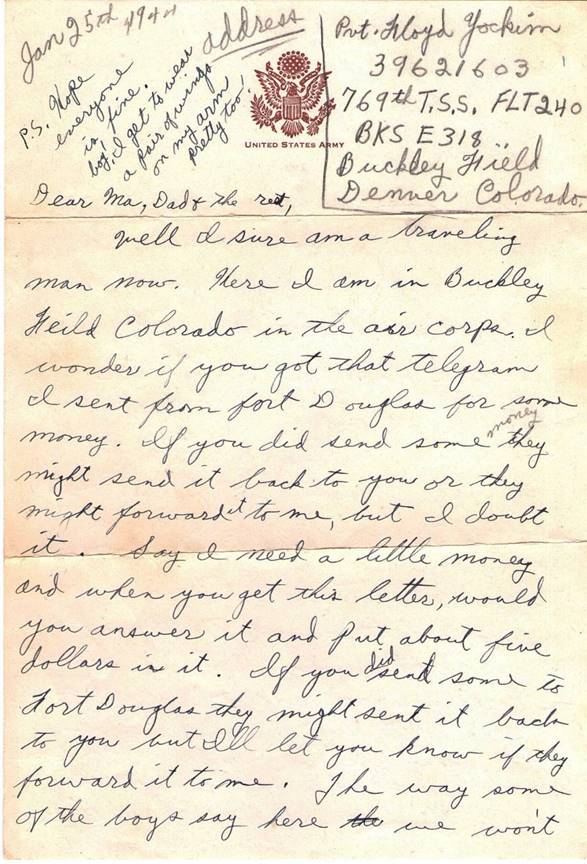 Jan 25th 1944
P.S. Hope
everyone
is fine.
boy I get to wear
a pair of wings
on my arm
pretty too!
address
UNITED STATES ARMY
Pvt. Floyd Yockim
39621603
769th T.S.S. FLT 240
BKS E 318
Buckley Field
Denver Colorado.
Dear Ma, Dad & the rest,
Well I sure am a traveling
man now. Here I am in Buckley
Feild Colorado in the air corps. I
wonder if you got that telegram
I sent from fort Douglas for some
money. If you did send some money they
might send it back to you or they
might forward it to me, but I doubt
it. Say I need a little money
and when you get this letter, would
you answer it and put about five
dollars in it. If you did send some to
Fort Douglas they might sent it back
to you but I'll let you know if they
forward it to me. The way some
of the boys say here the we won't